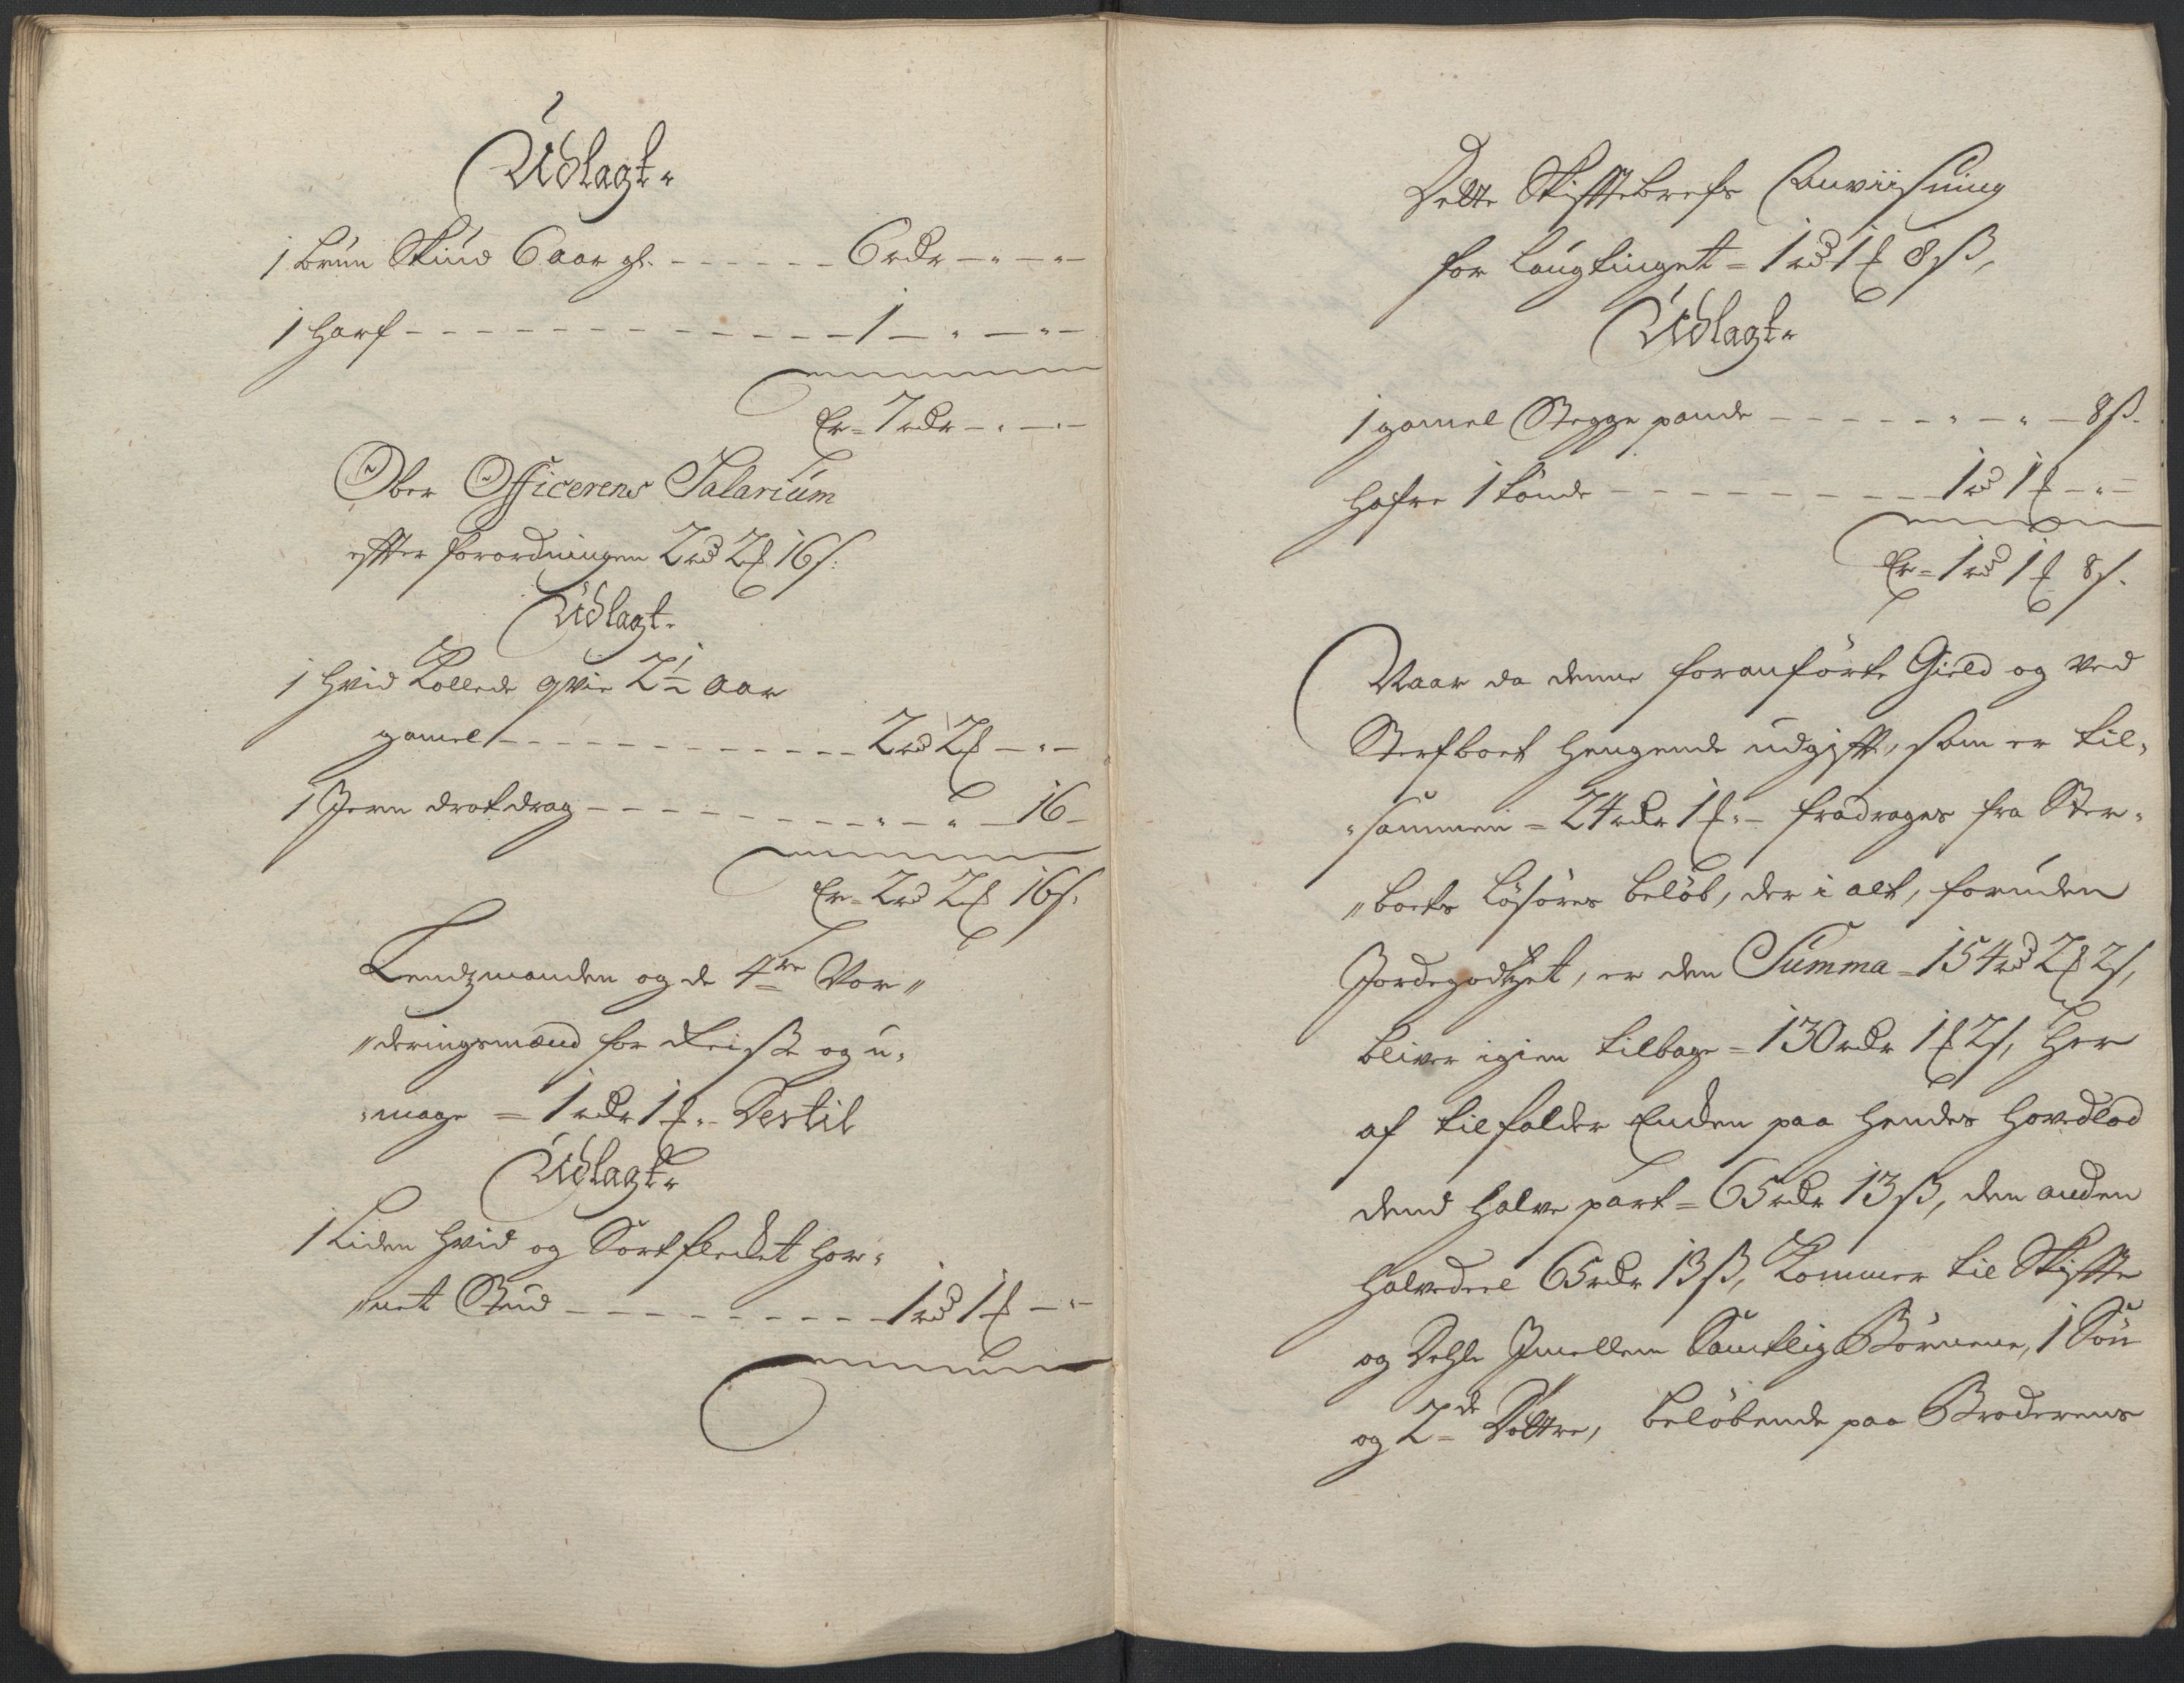 Udlagt.
1 brun Stuud 6 aar gl. - - - - - - 6 rdr - " - "
1 harf - - - - - - - - - - - - 1 - " - "
Er = 7 rdr - " - "
Ober Officerens Salarium
efter forordningen 2 rd 2 ƒ 16 s:
Udlagt.
1 hvid Kollede qvie 2 1/2 aar
gamel - - - - - - - - - - 2 rd 2 ƒ - " -
1 Jern drat drag - - - - - - " - " - 16 -
Er = 2 rd 2 ƒ 16 s.
Lendzmanden og de 4re Vor"
"deringsmænd for Reise og u,
"mage = 1 rdr 1 ƒ " Dertil
Udlagt.
1 Liden hvid og Sort flecket hor,
"net Stud - - - - - - - - 1 rd 1 ƒ - "
Dette Skifftebrefs Anviisning
for Laugtinget = 1 rd 1 ƒ 8 ß,
Udlagt.
1 gamel Stegge pande - - - - - " - " - 8 ß.
hafre 1 tønde - - - - - - - - 1 rd 1 ƒ - " -
Er = 1 rd 1 ƒ 8 s.
Naar da denne foranførte Gield og ved
Sterfboet hengende udgifft, som er til,
"sammen = 24 rdr 1 ƒ " - fradrages fra Ster,
"boets Løsøres beløb, der i alt, foruden
Jordegodtzet, er den Summa = 154 rd 2 ƒ 2 s,
bliver igien tilbage = 130 rdr 1 ƒ 2 s, Her
af tilfalder Enken paa hendes hovedlod
dend halve part = 65 rdr 13 ß, den anden
halvedeel 65 rdr 13 ß, Kommer til Skiffte
og Dehle Jmellem Samtlig Børnene, 1 Søn
og 2de Døttre, beløbende paa Broderens